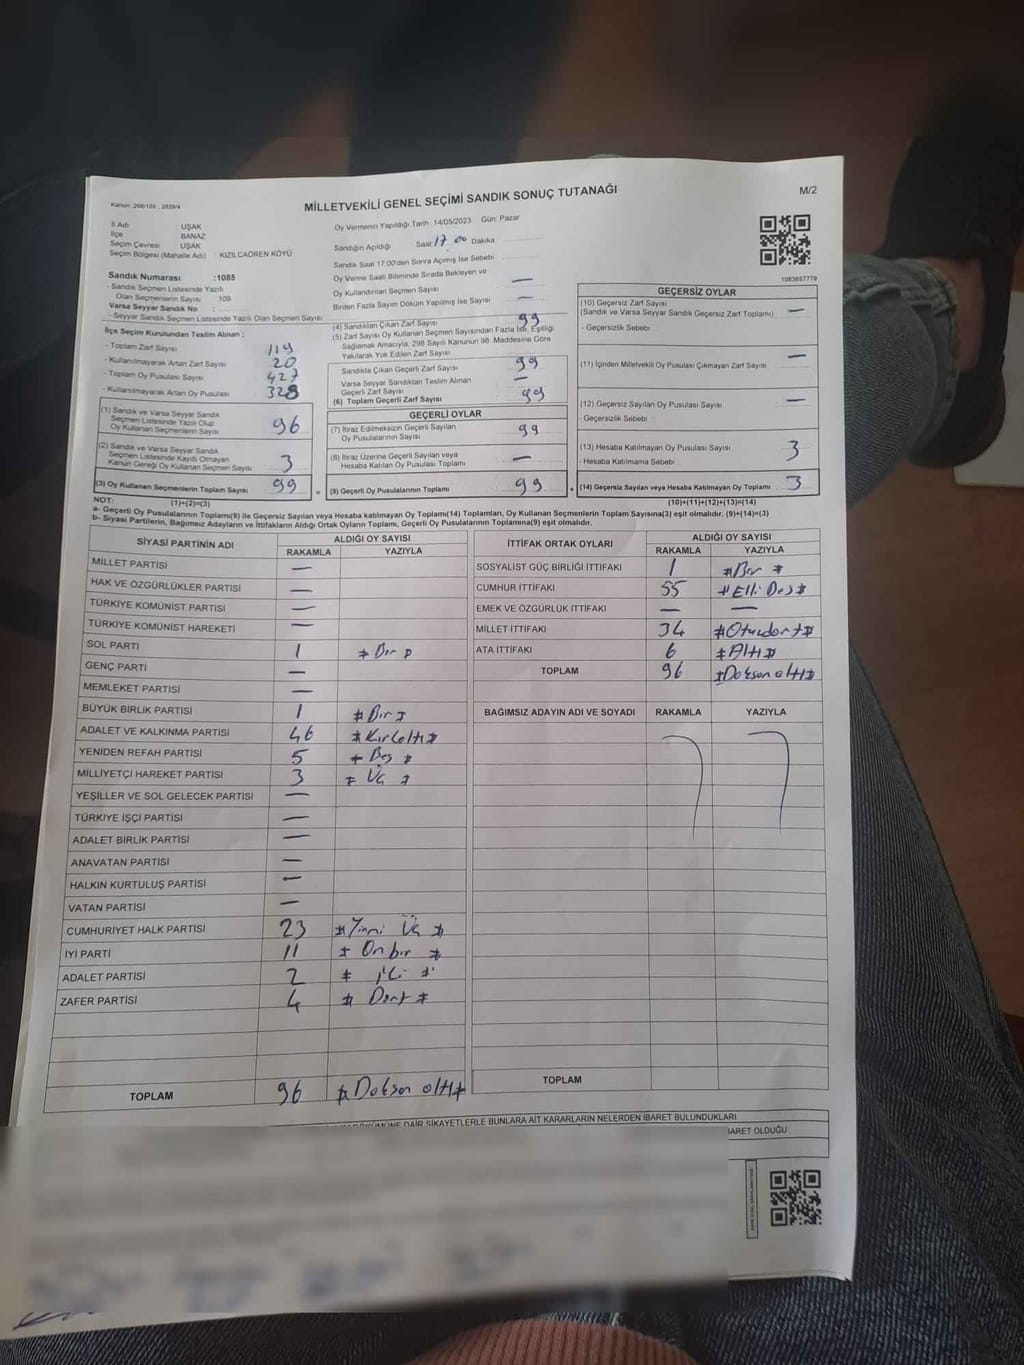 Kanun: 298/105 ; 2839/4
MİLLETVEKİLİ GENEL SEÇİMİ SANDIK SONUÇ TUTANAĞI
M/2
İl Adı UŞAK
İlçe BANAZ
Seçim Çevresi UŞAK
Seçim Bölgesi (Mahalle Adı) : KIZILCAÖREN KÖYÜ
Sandık Numarası :1085
- Sandık Seçmen Listesinde Yazılı
Olan Seçmenlerin Sayısı 109
Varsa Seyyar Sandık No :
- Seyyar Sandık Seçmen Listesinde Yazılı Olan Seçmen Sayısı
İlçe Seçim Kurulundan Teslim Alınan ;
- Toplam Zarf Sayısı 119
- Kullanılmayarak Artan Zarf Sayısı 20
- Toplam Oy Pusulası Sayısı 427
- Kullanılmayarak Artan Oy Pusulası 328
(1) Sandık ve Varsa Seyyar Sandık
Seçmen Listesinde Yazılı Olup
Oy Kullanan Seçmenlerin Sayısı 96
(2) Sandık ve Varsa Seyyar Sandık
Seçmen Listesinde Kayıtlı Olmayan
Kanun Gereği Oy Kullanan Seçmen Sayısı 3
(3) Oy Kullanan Seçmenlerin Toplam Sayısı 99 =
Oy Vermenin Yapıldığı Tarih :14/05/2023 Gün: Pazar
Sandığın Açıldığı Saat 17.00 Dakika
Sandık Saat 17:00'den Sonra Açılmış İse Sebebi
Oy Verme Saati Bitiminde Sırada Bekleyen ve
Oy Kullandırılan Seçmen Sayısı —
Birden Fazla Sayım Döküm Yapılmış İse Sayısı —
(4) Sandıktan Çıkan Zarf Sayısı 99
(5) Zarf Sayısı Oy Kullanan Seçmen Sayısından Fazla İse, Eşitliği
Sağlamak Amacıyla, 298 Sayılı Kanunun 98. Maddesine Göre
Yakılarak Yok Edilen Zarf Sayısı
Sandıkta Çıkan Geçerli Zarf Sayısı 99
Varsa Seyyar Sandıktan Teslim Alınan
Geçerli Zarf Sayısı —
(6) Toplam Geçerli Zarf Sayısı 99
GEÇERLİ OYLAR
(7) İtiraz Edilmeksizin Geçerli Sayılan
Oy Pusulalarının Sayısı 99
(8) İtiraz Üzerine Geçerli Sayılan veya
Hesaba Katılan Oy Pusulası Toplamı —
(9) Geçerli Oy Pusulalarının Toplamı 99 +
1083657779
GEÇERSİZ OYLAR
(10) Geçersiz Zarf Sayısı
(Sandık ve Varsa Seyyar Sandık Geçersiz Zarf Toplamı) —
- Geçersizlik Sebebi :
(11) İçinden Milletvekili Oy Pusulası Çıkmayan Zarf Sayısı —
(12) Geçersiz Sayılan Oy Pusulası Sayısı —
- Geçersizlik Sebebi :
(13) Hesaba Katılmayan Oy Pusulası Sayısı 3
- Hesaba Katılmama Sebebi :
(14) Geçersiz Sayılan veya Hesaba Katılmayan Oy Toplamı 3
NOT: (1)+(2)=(3) (10)+(11)+(12)+(13)=(14)
a- Geçerli Oy Pusulalarının Toplamı(9) ile Geçersiz Sayılan veya Hesaba Katılmayan Oy Toplamı(14) Toplamları, Oy Kullanan Seçmenlerin Toplam Sayısına(3) eşit olmalıdır. (9)+(14)=(3)
b- Siyasi Partilerin, Bağımsız Adayların ve İttifakların Aldığı Ortak Oyların Toplamı, Geçerli Oy Pusulalarının Toplamına(9) eşit olmalıdır.
SİYASİ PARTİNİN ADI ALDIĞI OY SAYISI
RAKAMLA YAZIYLA
MİLLET PARTİSİ —
HAK VE ÖZGÜRLÜKLER PARTİSİ —
TÜRKİYE KOMÜNİST PARTİSİ —
TÜRKİYE KOMÜNİST HAREKETİ —
SOL PARTİ 1 # Bir #
GENÇ PARTİ —
MEMLEKET PARTİSİ —
BÜYÜK BİRLİK PARTİSİ 1 # Bir #
ADALET VE KALKINMA PARTİSİ 46 # Kırkaltı #
YENİDEN REFAH PARTİSİ 5 # Beş #
MİLLİYETÇİ HAREKET PARTİSİ 3 # Üç #
YEŞİLLER VE SOL GELECEK PARTİSİ —
TÜRKİYE İŞÇİ PARTİSİ —
ADALET BİRLİK PARTİSİ —
ANAVATAN PARTİSİ —
HALKIN KURTULUŞ PARTİSİ —
VATAN PARTİSİ —
CUMHURİYET HALK PARTİSİ 23 # Yirmi Üç #
İYİ PARTİ 11 # On bir #
ADALET PARTİSİ 2 # İki #
ZAFER PARTİSİ 4 # Dört #
TOPLAM 96 # Doksan altı #
İTTİFAK ORTAK OYLARI ALDIĞI OY SAYISI
RAKAMLA YAZIYLA
SOSYALİST GÜÇ BİRLİĞİ İTTİFAKI 1 # Bir #
CUMHUR İTTİFAKI 55 # Elli Beş #
EMEK VE ÖZGÜRLÜK İTTİFAKI — —
MİLLET İTTİFAKI 34 # Otuzdört #
ATA İTTİFAKI 6 # Altı #
TOPLAM 96 # Doksan altı #
BAĞIMSIZ ADAYIN ADI VE SOYADI RAKAMLA YAZIYLA
TOPLAM
DÖKÜMÜNE DAİR ŞİKAYETLERLE BUNLARA AİT KARARLARIN NELERDEN İBARET BULUNDUKLARI
İBARET OLDUĞU